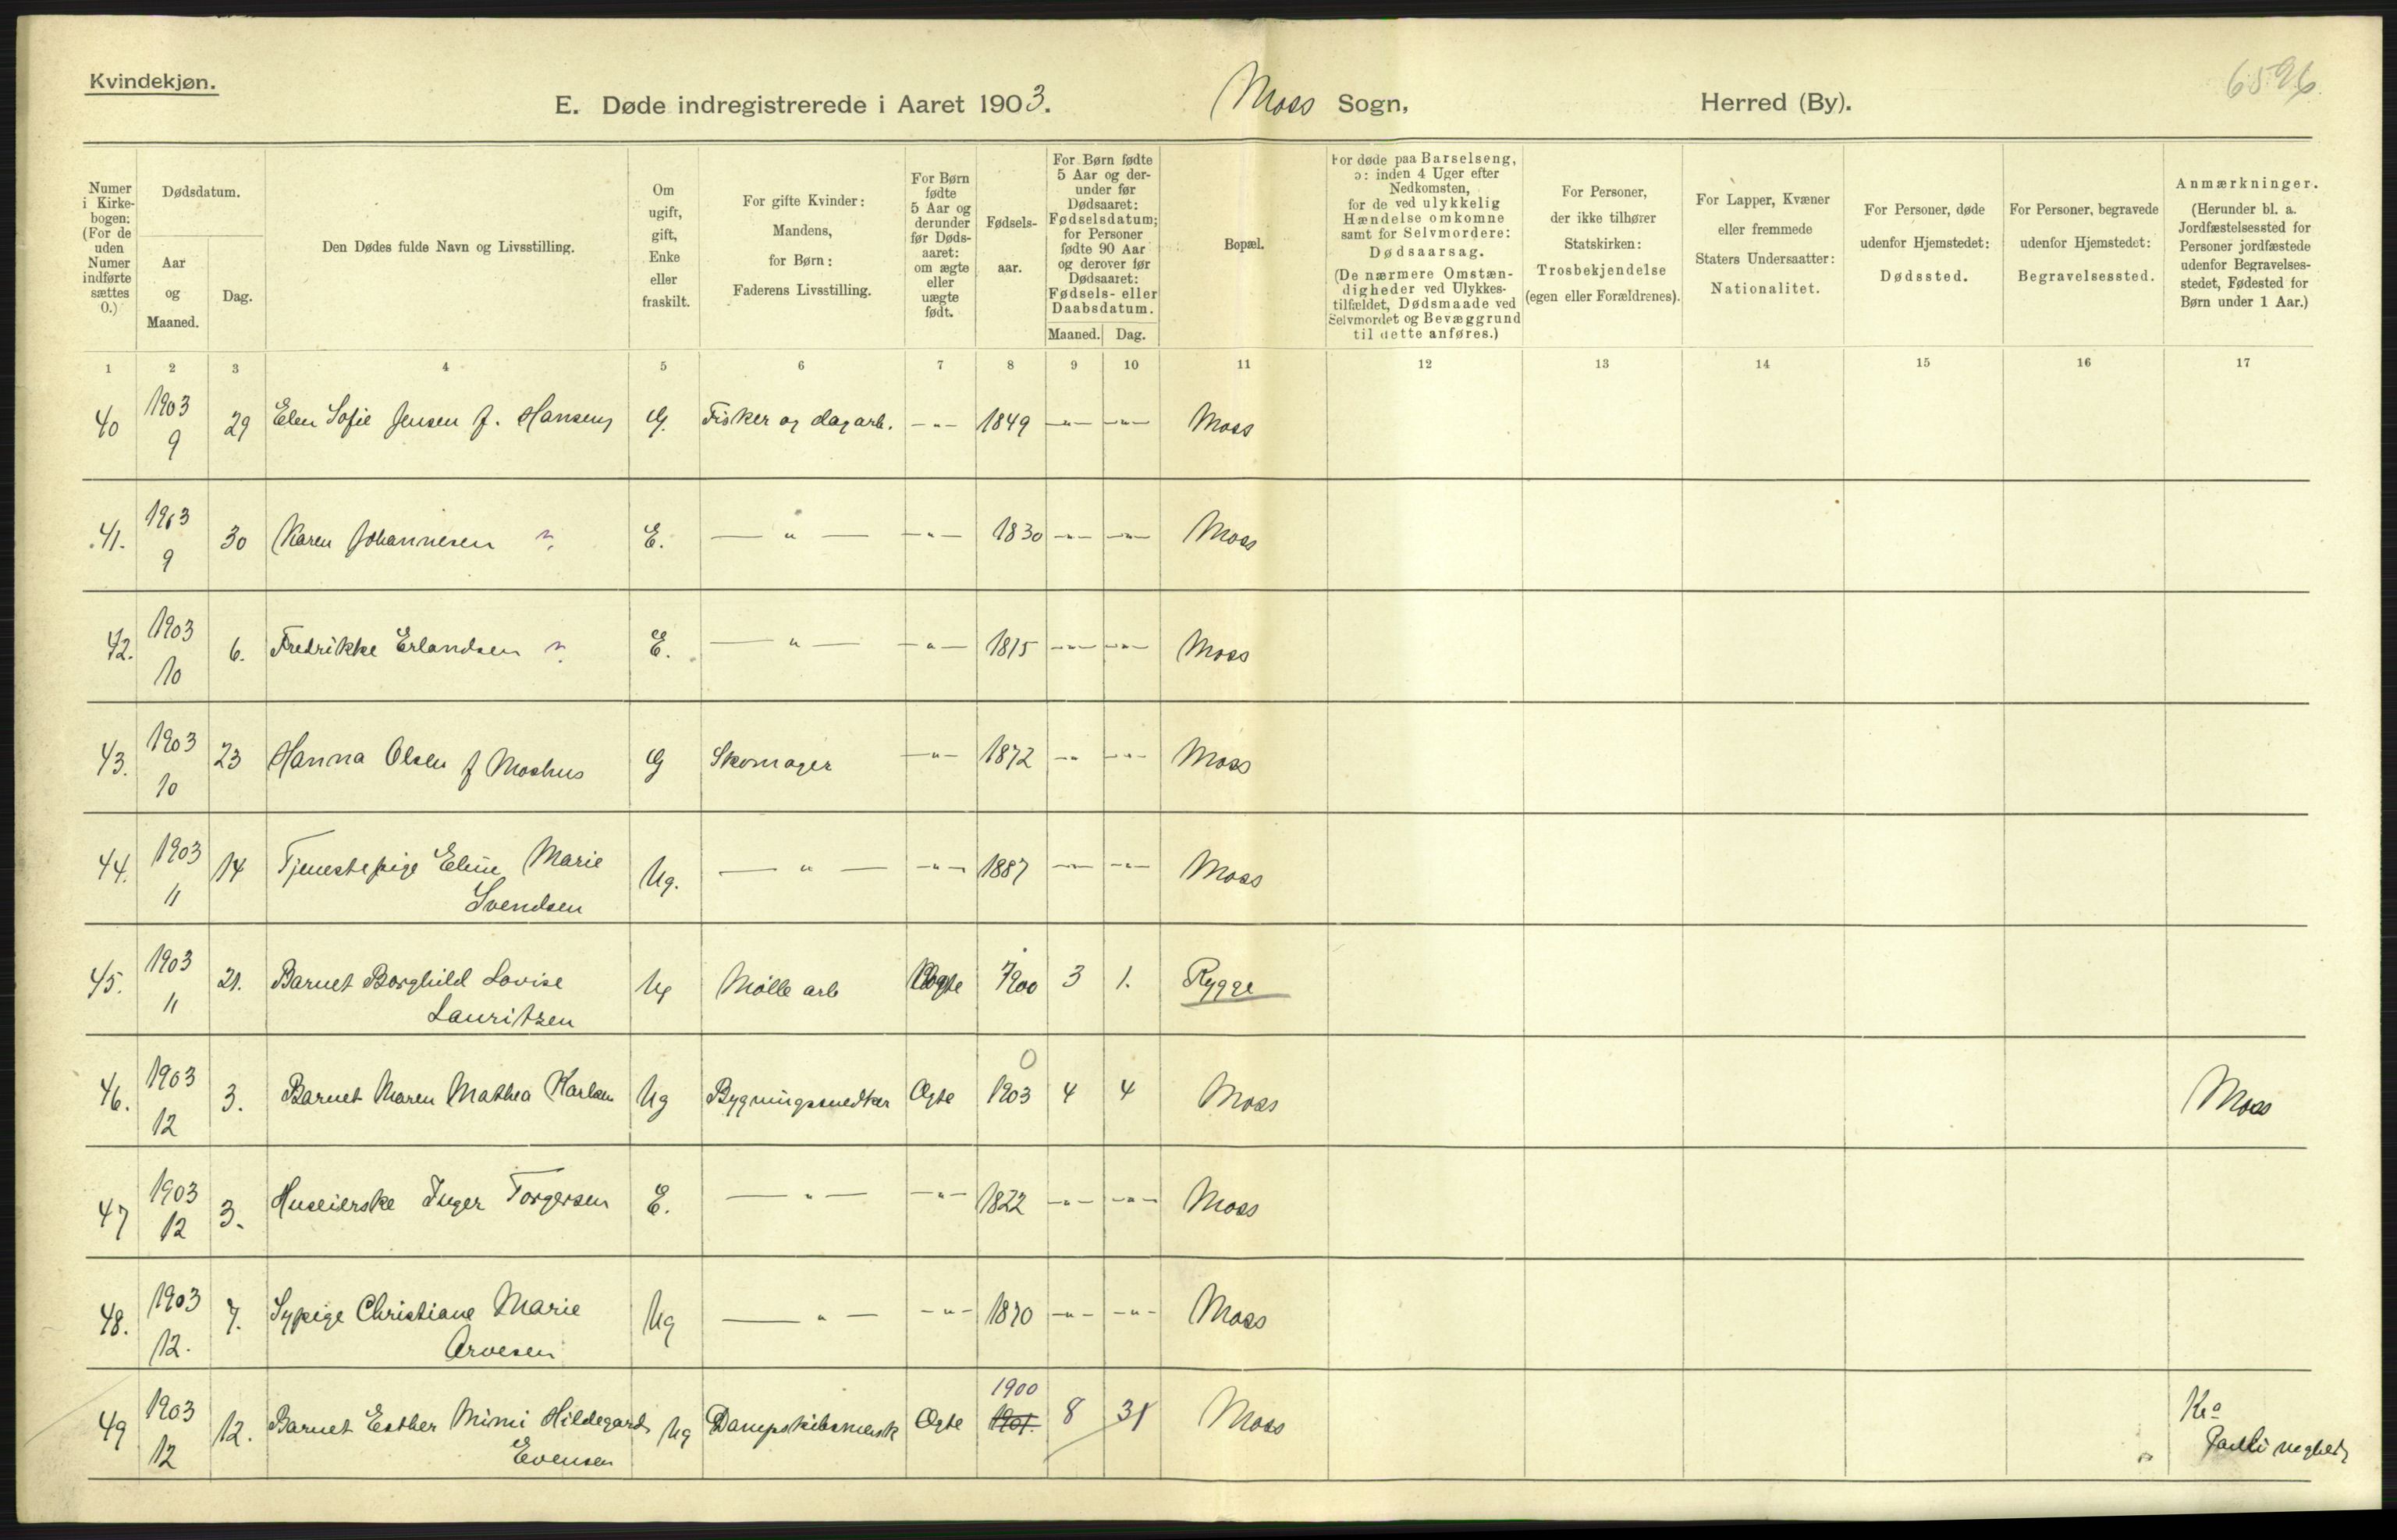 Kvindekjøn.
6596
E. Døde indregistrerede i Aaret 1903. Moss Sogn, Herred (By).
Numer i Kirkebogen; (For de uden Numer indførte sættes 0.)
Dødsdatum.
Aar og Maaned.
Dag.
Den Dødes fulde Navn og Livsstilling.
Om ugift, gift, Enke eller fraskilt.
For gifte Kvinder: Mandens, for Børn: Faderens Livsstilling.
For Børn fødte 5 Aar og derunder før Dødsaaret: om ægte eller uægte født.
Fødselsaar.
For Børn fødte 5 Aar og derunder før Dødsaaret: Fødselsdatum; for Personer fødte 90 Aar og derover før Dødsaaret: Fødsels- eller Daabsdatum.
Maaned. Dag.
Bopæl.
For døde paa Barselseng, ɔ: inden 4 Uger efter Nedkomsten, for de ved ulykkelig Hændelse omkomne samt for Selvmordere: Dødsaarsag. (De nærmere Omstændigheder ved Ulykkestilfældet, Dødsmaade ved Selvmordet og Bevæggrund til dette anføres.)
For Personer, der ikke tilhører Statskirken: Trosbekjendelse (egen eller Forældrenes).
For Lapper, Kvæner eller fremmede Staters Undersaatter: Nationalitet.
For Personer, døde udenfor Hjemstedet: Dødssted.
For Personer, begravede udenfor Hjemstedet: Begravelsessted.
Anmærkninger. (Herunder bl. a. Jordfæstelsessted for Personer jordfæstede udenfor Begravelsesstedet, Fødested for Børn under 1 Aar.)
1 2 3 4 5 6 7 8 9 10 11 12 13 14 15 16 17
40 1903 9 29 Elen Sofie Jensen f. Hansen G. Fisker og dagarb. -"- 1849 -"- -"- Moss
41. 1903 9 30 Karen Johannesen E. -"- -"- 1830 -"- -"- Moss
42. 1903 10 6. Fredrikke Erlandsen E. -"- -"- 1815 -"- -"- Moss
43. 1903 10 23 Hanna Olsen f Moshus G Skomager -"- 1872 -"- -"- Moss
44. 1903 11 14 Tjenestepige Eline Marie Svendsen Ug. -"- -"- 1887 -"- -"- Moss
45. 1903 11 21. Barnet Borghild Lovise Lauritzen Ug Mølle arb Ægte 1900 3 1. Rygge
46. 1903 12 3. Barnet Maren Mathea Karlsen Ug Bygningssnedker Ægte 0 1903 4 4 Moss Moss
47 1903 12 3. Huseierske Inger Torgersen E. -"- -"- 1822 -"- -"- Moss
48. 1903 12. 7. Sypige Christiane Marie Arvesen Ug -"- -"- 1870 -"- -"- Moss
49 1903 12 12. Barnet Esther Mimi Hildegard Evensen Ug Dampskibsmask Ægte 1900 1901. 8 31 Moss Kra